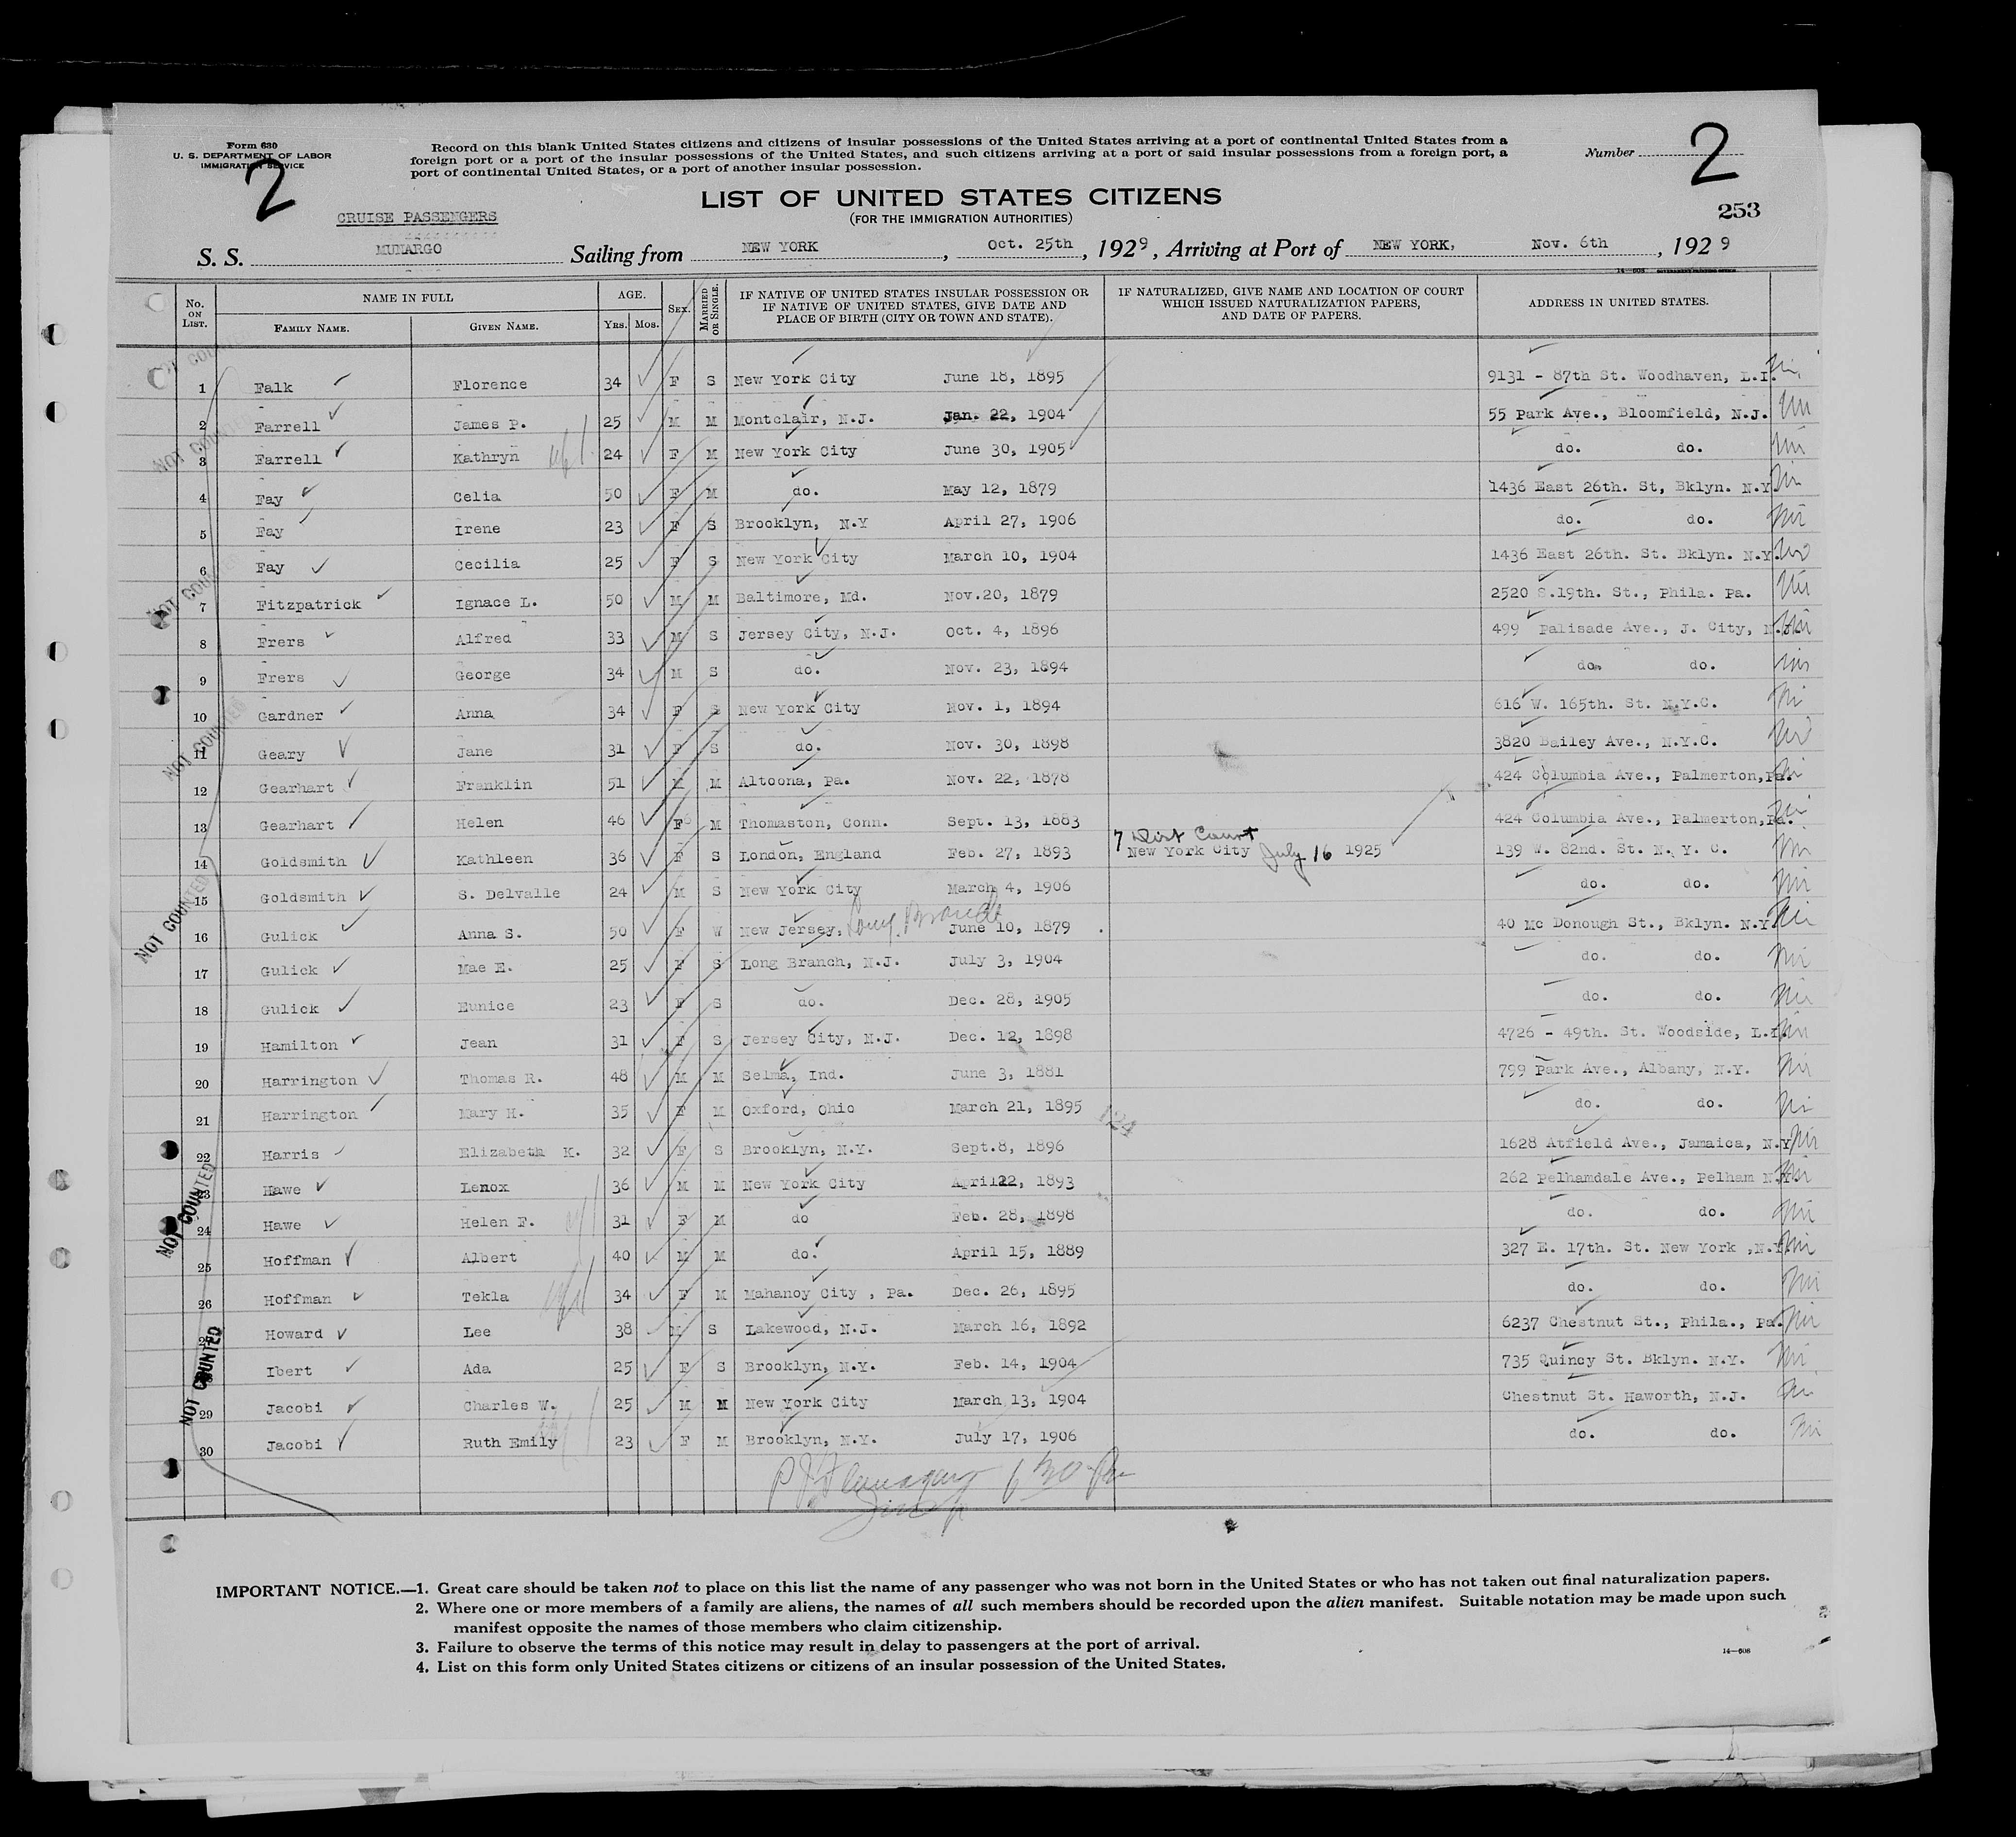 Form 630
U. S. DEPARTMENT OF LABOR
IMMIGRATION SERVICE
2
Record on this blank United States citizens and citizens of insular possessions of the United States arriving at a port of continental United States from a
foreign port or a port of the insular possessions of the United States, and such citizens arriving at a port of said insular possessions from a foreign port, a
port of continental United States, or a port of another insular possession.
Number 2
LIST OF UNITED STATES CITIZENS
(FOR THE IMMIGRATION AUTHORITIES)
253
CRUISE PASSENGERS
S. S. MUNARGO Sailing from NEW YORK, Oct. 25th, 1929, Arriving at Port of NEW YORK, Nov. 6th, 1929
14—608 GOVERNMENT PRINTING OFFICE
No. ON LIST. NAME IN FULL FAMILY NAME. GIVEN NAME. AGE. YRS. MOS. SEX. MARRIED OR SINGLE. IF NATIVE OF UNITED STATES INSULAR POSSESSION OR IF NATIVE OF UNITED STATES, GIVE DATE AND PLACE OF BIRTH (CITY OR TOWN AND STATE). IF NATURALIZED, GIVE NAME AND LOCATION OF COURT WHICH ISSUED NATURALIZATION PAPERS, AND DATE OF PAPERS. ADDRESS IN UNITED STATES.
1 Falk Florence 34 F S New York City June 18, 1895 9131 - 87th St. Woodhaven, L.I.
2 Farrell James P. 25 M M Montclair, N.J. Jan. 22, 1904 55 Park Ave., Bloomfield, N.J.
3 Farrell Kathryn 24 F M New York City June 30, 1905 do. do.
4 Fay Celia 50 F M do. May 12, 1879 1436 East 26th. St, Bklyn. N.Y.
5 Fay Irene 23 F S Brooklyn, N.Y April 27, 1906 do. do.
6 Fay Cecilia 25 F S New York City March 10, 1904 1436 East 26th. St. Bklyn. N.Y.
7 Fitzpatrick Ignace L. 50 M M Baltimore, Md. Nov.20, 1879 2520 S.19th. St., Phila. Pa.
8 Frers Alfred 33 M S Jersey City, N.J. Oct. 4, 1896 499 Palisade Ave., J. City, N.J.
9 Frers George 34 M S do. Nov. 23, 1894 do. do.
10 Gardner Anna 34 F S New York City Nov. 1, 1894 616 W. 165th. St. N.Y.C.
11 Geary Jane 31 F S do. Nov. 30, 1898 3820 Bailey Ave., N.Y.C.
12 Gearhart Franklin 51 M M Altoona, Pa. Nov. 22, 1878 424 Columbia Ave., Palmerton,Pa.
13 Gearhart Helen 46 F M Thomaston, Conn. Sept. 13, 1883 424 Columbia Ave., Palmerton,Pa.
Dist Court
14 Goldsmith Kathleen 36 F S London, England Feb. 27, 1893 New York City July 16 1925 139 W. 82nd. St. N. Y. C.
15 Goldsmith S. Delvalle 24 M S New York City March 4, 1906 do. do.
16 Gulick Anna S. 50 F W New Jersey, Long Branch June 10, 1879 40 Mc Donough St., Bklyn. N.Y.
17 Gulick Mae E. 25 F S Long Branch, N.J. July 3, 1904 do. do.
18 Gulick Eunice 23 F S do. Dec. 28, 1905 do. do.
19 Hamilton Jean 31 F S Jersey City, N.J. Dec. 12, 1898 4726 - 49th. St. Woodside, L.I.
20 Harrington Thomas R. 48 M M Selma, Ind. June 3, 1881 799 Park Ave., Albany, N.Y.
21 Harrington Mary H. 35 F M Oxford, Ohio March 21, 1895 124 do. do.
22 Harris Elizabeth K. 32 F S Brooklyn, N.Y. Sept.8, 1896 1628 Atfield Ave., Jamaica, N.Y
23 Hawe Lenox 36 M M New York City April22, 1893 262 Pelhamdale Ave., Pelham N.Y.
24 Hawe Helen F. 31 F M do Feb. 28, 1898 do. do.
25 Hoffman Albert 40 M M do. April 15, 1889 327 E. 17th. St. New York ,N.Y.
26 Hoffman Tekla 34 F M Mahanoy City , Pa. Dec. 26, 1895 do. do.
27 Howard Lee 38 M S Lakewood, N.J. March 16, 1892 6237 Chestnut St., Phila., Pa.
28 Ibert Ada 25 F S Brooklyn, N.Y. Feb. 14, 1904 735 Quincy St. Bklyn. N.Y.
29 Jacobi Charles W. 25 M M New York City March 13, 1904 Chestnut St. Haworth, N.J.
30 Jacobi Ruth Emily 23 F M Brooklyn, N.Y. July 17, 1906 do. do.
NOT COUNTED
NOT COUNTED
NOT COUNTED
NOT COUNTED
NOT COUNTED
NOT COUNTED
NOT COUNTED
P J Flanagan 6 30 Pm
IMPORTANT NOTICE.—1. Great care should be taken not to place on this list the name of any passenger who was not born in the United States or who has not taken out final naturalization papers.
2. Where one or more members of a family are aliens, the names of all such members should be recorded upon the alien manifest. Suitable notation may be made upon such
manifest opposite the names of those members who claim citizenship.
3. Failure to observe the terms of this notice may result in delay to passengers at the port of arrival.
4. List on this form only United States citizens or citizens of an insular possession of the United States.
14—608